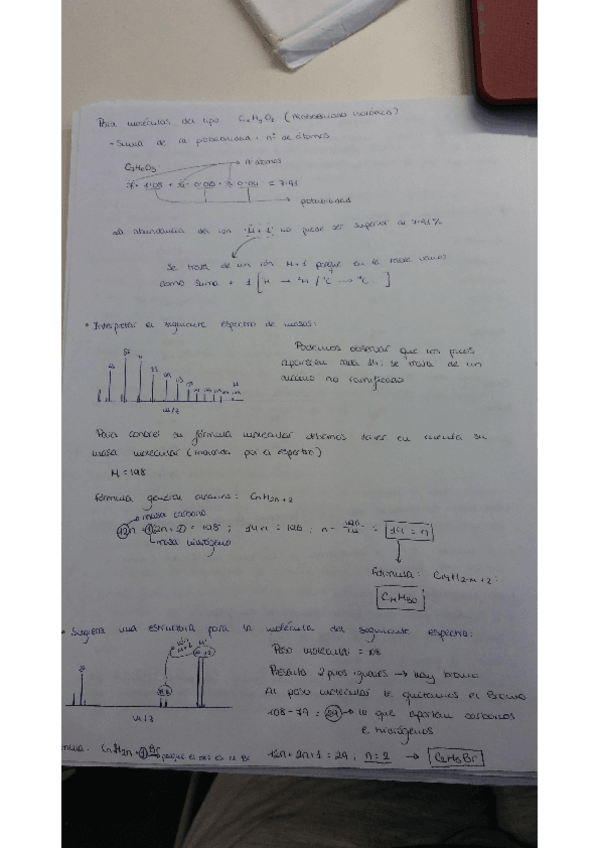 Para moléculas del tipo CxHyOz (
- Suma de la probabilidad · nº de átomos
C7H6O3 → nº átomos
7 · 1.08 + 6 · 0.00 + 3 · 0.04 = 7.91
probabilidad
La abundancia del ion "M+1" no puede ser superior al 7.91%
Se trata de un ión M+1 porque en la masa
como suma + 1
• Interpretar el siguiente espectro de masas:
Podemos observar que los picos
aparecen cada 14: se trata de un
alcano no ramificado
m/z
Para conocer su fórmula molecular debemos tener en cuenta su
masa molecular (indicada por el espectro)
M = 198
Fórmula general alcanos: CnH2n+2
masa carbono
12n + 1(2n+2) = 198 ; 14n = 196 ; n = 196/14 = 14 = n
masa hidrógeno
Fórmula: C14H2·14+2:
C14H30
• Sugiera una estructura para la molécula del siguiente espectro:
Peso molecular = 108
Presenta 2 picos iguales → hay bromo
Al peso molecular le quitamos el Bromo
108 - 79 = 29 → lo que aportan carbonos
e hidrógenos
m/z
CnH2n+1Br → porque el
12n + 2n + 1 = 29 , n = 2 → C2H5Br